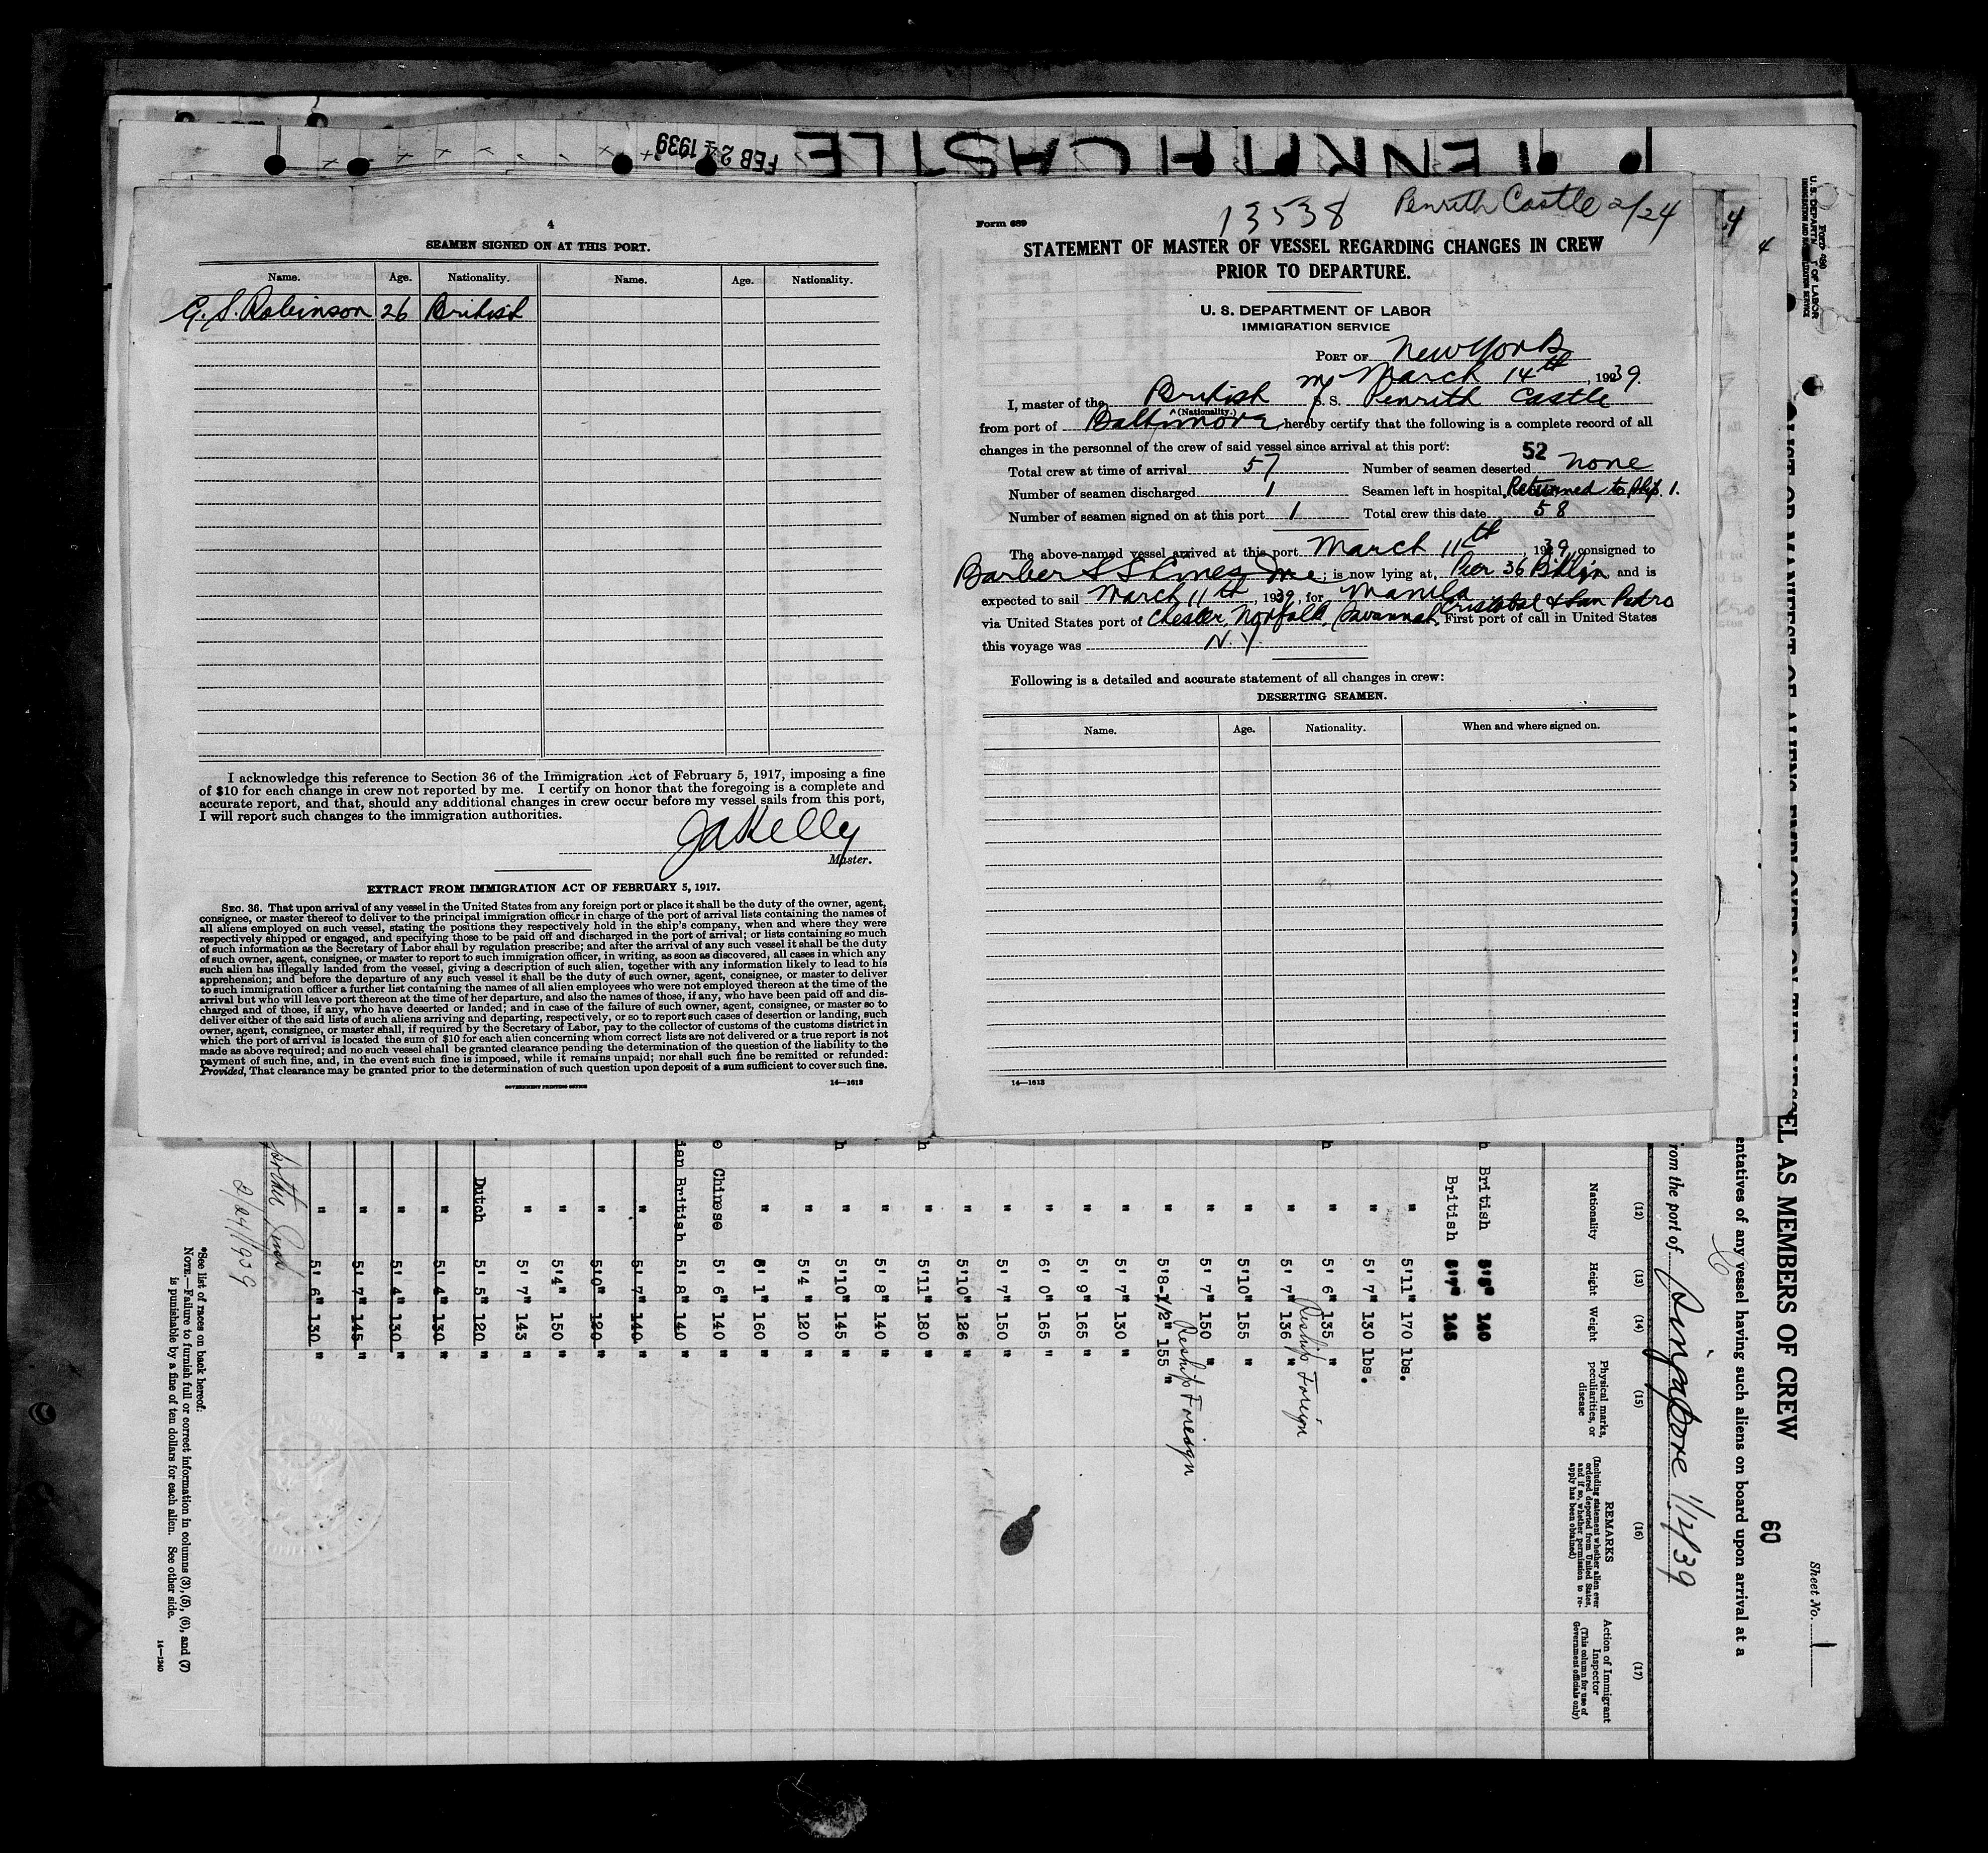 PENRITH CASTLE
FEB 24 1939
4
SEAMEN SIGNED ON AT THIS PORT.
Name. Age. Nationality. Name. Age. Nationality.
G. S. Robinson 26 British
I acknowledge this reference to Section 36 of the Immigration Act of February 5, 1917, imposing a fine
of $10 for each change in crew not reported by me. I certify on honor that the foregoing is a complete and
accurate report, and that, should any additional changes in crew occur before my vessel sails from this port,
I will report such changes to the immigration authorities.
JAKelly
Master.
EXTRACT FROM IMMIGRATION ACT OF FEBRUARY 5, 1917.
SEC. 36. That upon arrival of any vessel in the United States from any foreign port or place it shall be the duty of the owner, agent,
consignee, or master thereof to deliver to the principal immigration officer in charge of the port of arrival lists containing the names of
all aliens employed on such vessel, stating the positions they respectively hold in the ship's company, when and where they were
respectively shipped or engaged, and specifying those to be paid off and discharged in the port of arrival; or lists containing so much
of such information as the Secretary of Labor shall by regulation prescribe; and after the arrival of any such vessel it shall be the duty
of such owner, agent, consignee, or master to report to such immigration officer, in writing, as soon as discovered, all cases in which any
such alien has illegally landed from the vessel, giving a description of such alien, together with any information likely to lead to his
apprehension; and before the departure of any such vessel it shall be the duty of such owner, agent, consignee, or master to deliver
to such immigration officer a further list containing the names of all alien employees who were not employed thereon at the time of the
arrival but who will leave port thereon at the time of her departure, and also the names of those, if any, who have been paid off and dis-
charged and of those, if any, who have deserted or landed; and in case of the failure of such owner, agent, consignee, or master so to
deliver either of the said lists of such aliens arriving and departing, respectively, or so to report such cases of desertion or landing, such
owner, agent, consignee, or master shall, if required by the Secretary of Labor, pay to the collector of customs of the customs district in
which the port of arrival is located the sum of $10 for each alien concerning whom correct lists are not delivered or a true report is not
made as above required; and no such vessel shall be granted clearance pending the determination of the question of the liability to the
payment of such fine, and, in the event such fine is imposed, while it remains unpaid; nor shall such fine be remitted or refunded:
Provided, That clearance may be granted prior to the determination of such question upon deposit of a sum sufficient to cover such fine.
GOVERNMENT PRINTING OFFICE 14—1613
Form 689 13538 Penrith Castle 2/24
STATEMENT OF MASTER OF VESSEL REGARDING CHANGES IN CREW
PRIOR TO DEPARTURE.
U. S. DEPARTMENT OF LABOR
IMMIGRATION SERVICE
PORT OF New York
March 14th, 1939.
I, master of the British S. S. Penrith Castle
(Nationality.)
from port of Baltimore, hereby certify that the following is a complete record of all
changes in the personnel of the crew of said vessel since arrival at this port:
52
Total crew at time of arrival 57 Number of seamen deserted none
Number of seamen discharged 1 Seamen left in hospital Returned to ship 1.
Number of seamen signed on at this port 1 Total crew this date 58
The above-named vessel arrived at this port March 11th, 1939, consigned to
Barber S S Lines Inc; is now lying at Pier 36 Bklyn, and is
expected to sail March 11th, 1939, for Manila
via United States port of Chester, Norfolk, Savannah, Cristobal & San Pedro First port of call in United States
this voyage was N. Y.
Following is a detailed and accurate statement of all changes in crew:
DESERTING SEAMEN.
Name. Age. Nationality. When and where signed on.
14—1613
4
4
Form 680
U. S. DEPARTMENT OF LABOR
IMMIGRATION AND NATURALIZATION SERVICE
Sheet No. 1
60
VESSEL AS MEMBERS OF CREW
entatives of any vessel having such aliens on board upon arrival at a
rom the port of Singapore 1/12/39
(12) (13) (14) (15) (16) (17)
Nationality
Height
Weight
Physical marks, peculiarities, or disease
REMARKS
(Including statement whether alien ever ordered deported from United States, and if so, whether permission to re-apply has been obtained)
Action of Immigrant Inspector
(This column for use of Government officials only)
h British 5'8" 140
British 5'7" 148
" 5'11" 170 lbs.
" 5' 7" 130 lbs.
h " 5' 6" 135 "
" 5' 7" 156 " Reship Foreign
" 5'10" 155 "
" 5' 7" 150 "
" 5'8-1/2" 155 " Reship Foreign
" 5' 7" 130 "
" 5' 9" 165 "
" 6' 0" 165 "
" 5' 7" 150 "
" 5'10" 126 "
h " 5'11" 180 "
" 5' 8" 140 "
h " 5'10" 145 "
" 5'4 " 120 "
" 5' 1" 160 "
e Chinese 5' 6" 140 "
ian British 5' 8" 140 "
" 5' 7" 140 "
" 5'0" 120 "
" 5'4" 150 "
" 5' 7" 143 "
Dutch 5' 5" 120 "
" 5'4" 130 "
" 5' 4" 130 "
" 5' 7" 145 "
" 5' 6" 130 "
2/24/1939
*See list of races on back hereof.
NOTE.—Failure to furnish full or correct information in columns (3), (5), (6), and (7)
is punishable by a fine of ten dollars for each alien. See other side.
14—1240